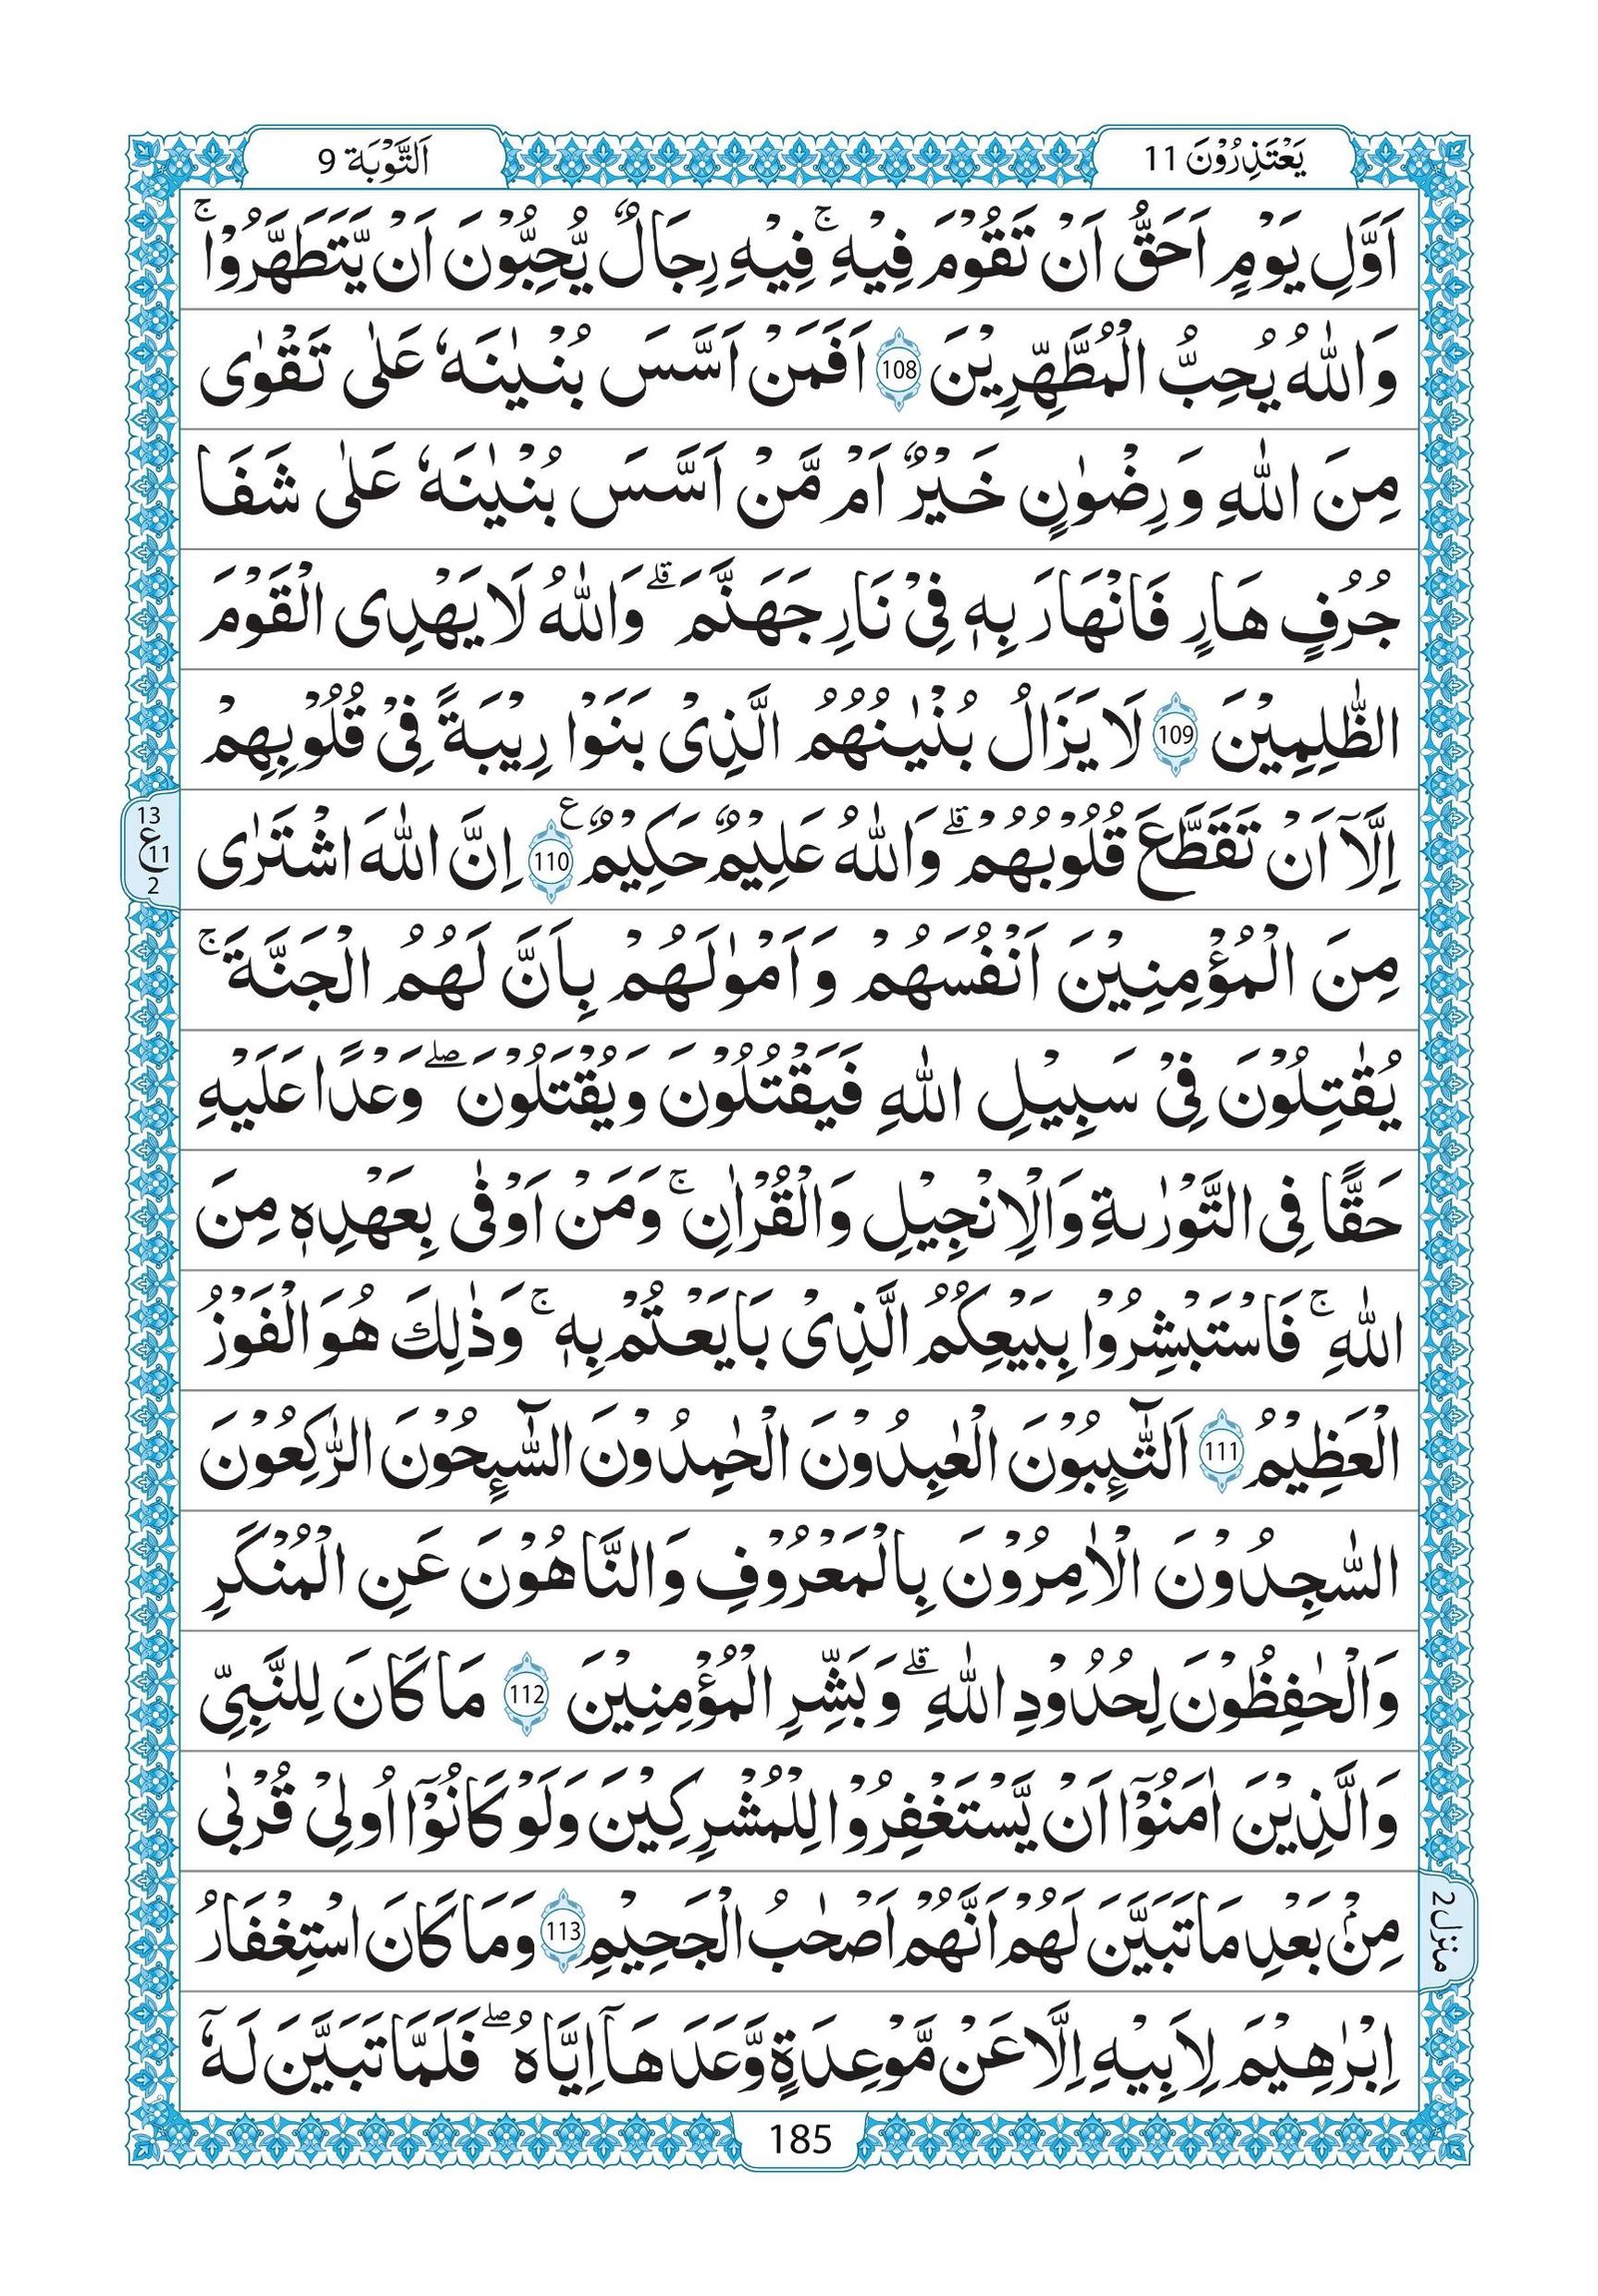 يَعْتَذِرُوْنَ 11
اَلتَّوْبَة 9
اَوَّلِ يَوْمٍ اَحَقُّ اَنْ تَقُوْمَ فِيْهِ ۚ فِيْهِ رِجَالٌ يُّحِبُّوْنَ اَنْ يَّتَطَهَّرُوْا ۚ
وَاللّٰهُ يُحِبُّ الْمُطَّهِّرِيْنَ 108 اَفَمَنْ اَسَّسَ بُنْيٰنَهٗ عَلٰى تَقْوٰى
مِنَ اللّٰهِ وَرِضْوٰنٍ خَيْرٌ اَمْ مَّنْ اَسَّسَ بُنْيٰنَهٗ عَلٰى شَفَا
جُرُفٍ هَارٍ فَانْهَارَ بِهٖ فِيْ نَارِ جَهَنَّمَ ۗ وَاللّٰهُ لَا يَهْدِى الْقَوْمَ
الظّٰلِمِيْنَ 109 لَا يَزَالُ بُنْيٰنُهُمُ الَّذِيْ بَنَوْا رِيْبَةً فِيْ قُلُوْبِهِمْ
اِلَّآ اَنْ تَقَطَّعَ قُلُوْبُهُمْ ۗ وَاللّٰهُ عَلِيْمٌ حَكِيْمٌ ع 110 اِنَّ اللّٰهَ اشْتَرٰى
13
ع 11
2
مِنَ الْمُؤْمِنِيْنَ اَنْفُسَهُمْ وَاَمْوٰلَهُمْ بِاَنَّ لَهُمُ الْجَنَّةَ ۚ
يُقٰتِلُوْنَ فِيْ سَبِيْلِ اللّٰهِ فَيَقْتُلُوْنَ وَيُقْتَلُوْنَ ۖ وَعْدًا عَلَيْهِ
حَقًّا فِى التَّوْرٰىةِ وَالْاِنْجِيْلِ وَالْقُرْاٰنِ ۚ وَمَنْ اَوْفٰى بِعَهْدِهٖ مِنَ
اللّٰهِ ۚ فَاسْتَبْشِرُوْا بِبَيْعِكُمُ الَّذِيْ بَايَعْتُمْ بِهٖ ۚ وَذٰلِكَ هُوَ الْفَوْزُ
الْعَظِيْمُ 111 اَلتَّآئِبُوْنَ الْعٰبِدُوْنَ الْحٰمِدُوْنَ السَّآئِحُوْنَ الرّٰكِعُوْنَ
السّٰجِدُوْنَ الْاٰمِرُوْنَ بِالْمَعْرُوْفِ وَالنَّاهُوْنَ عَنِ الْمُنْكَرِ
وَالْحٰفِظُوْنَ لِحُدُوْدِ اللّٰهِ ۗ وَبَشِّرِ الْمُؤْمِنِيْنَ 112 مَا كَانَ لِلنَّبِيِّ
وَالَّذِيْنَ اٰمَنُوْٓا اَنْ يَّسْتَغْفِرُوْا لِلْمُشْرِكِيْنَ وَلَوْ كَانُوْٓا اُولِيْ قُرْبٰى
مِنْۢ بَعْدِ مَا تَبَيَّنَ لَهُمْ اَنَّهُمْ اَصْحٰبُ الْجَحِيْمِ 113 وَمَا كَانَ اسْتِغْفَارُ
منزل 2
اِبْرٰهِيْمَ لِاَبِيْهِ اِلَّا عَنْ مَّوْعِدَةٍ وَّعَدَهَآ اِيَّاهُ ۖ فَلَمَّا تَبَيَّنَ لَهٗٓ
185